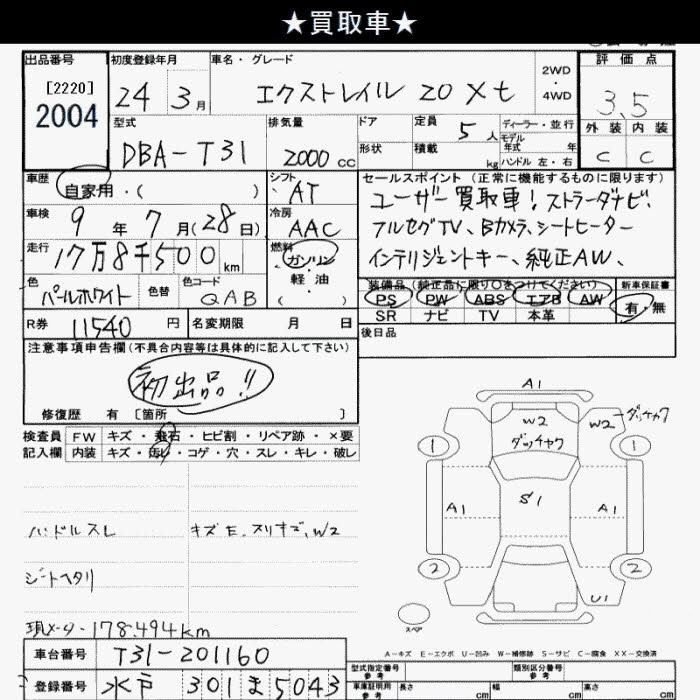 ★買取車★
出品番号
[2220]
2004
初度登録年月
24 3月
車名・グレード
エクストレイル 20 Xt
2WD
・
4WD
評価点
3.5
外装 内装
C C
型式
DBA-T31
排気量
2000 cc
ドア
形状
定員
5人
積載
kg
ディーラー・並行
モデル
年式 年
ハンドル 左・右
車歴
自家用・( )
シフト
AT
セールスポイント (正常に機能するものに限ります)
ユーザー買取車! ストラーダナビ、
フルセグTV、Bカメラ、シートヒーター
インテリジェントキー、純正AW、
車検
9年7月(28日)
冷房
AAC
走行
17万8千500km
燃料
ガソリン
・
軽油
( )
色
パールホワイト
色替
色コード
QAB
装備品 (純正品に限り○をつけてください)
PS PW ABS エアB AW
SR ナビ TV 本革
新車保証書
有・無
R券 11540円
名変期限 月 日
後日品
注意事項申告欄 (不具合内容等は具体的に記入して下さい)
初出品!!
修復歴 有 [箇所 ]
検査員
記入欄
FW キズ・飛石・ヒビ割・リペア跡・×要
内装 キズ・汚レ・コゲ・穴・スレ・キレ・破レ
ハンドルスレ
キズE.スリキズ、W2
シートヘタリ
現メーター178.494km
A1
W2
ダッチャク
W2
ダッチャク
1
1
A1
S1
A1
2
2
U1
スペア
A-キズ E-エクボ U-凹み W-補修跡 S-サビ C-腐食 XX-交換済
車台番号
T31-201160
登録番号
水戸 301 ま 5043
型式指定番号
参考
類別区分番号
参考
車庫証明用
参考
長さ cm
幅 cm
高さ cm